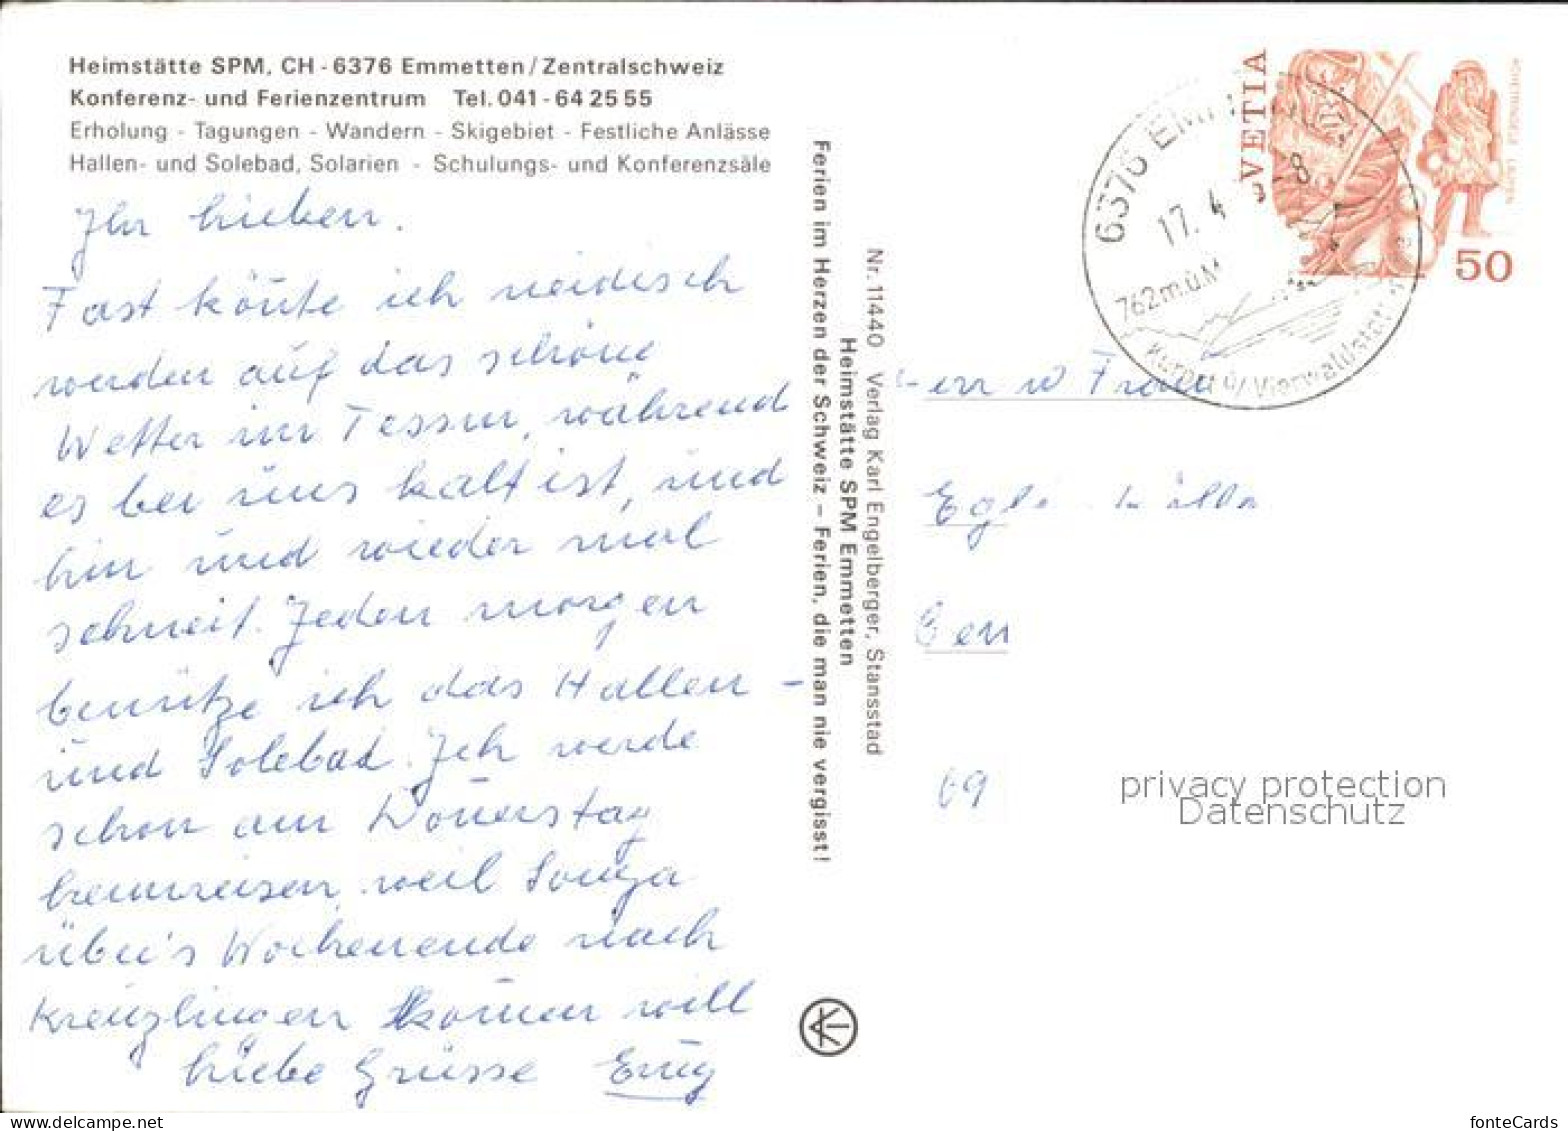 Heimstätte SPM, CH - 6376 Emmetten/Zentralschweiz
Konferenz- und Ferienzentrum Tel. 041 - 64 25 55
Erholung - Tagungen - Wandern - Skigebiet - Festliche Anlässe
Hallen- und Solebad, Solarien - Schulungs- und Konferenzsäle
Ihr Lieben.
Fast kön̄te ich neidisch
werden auf das schöne
Wetter im Tessin, während
es bei uns kalt ist, und
hin und wieder mal
schneit. Jeden morgen
benütze ich das Hallen-
und Solebad. Ich werde
schon am Don̄erstag
heimreisen, weil Sonja
über's Wochenende nach
Kreuzlingen kom̄en will
Liebe Grüsse Emy
Ferien im Herzen der Schweiz – Ferien, die man nie vergisst!
Heimstätte SPM Emmetten
Nr. 11440 Verlag Karl Engelberger, Stansstad
HELVETIA
50
6376 EMM
17. 4 8
762 m.ü.M
Kurort a/Vierwaldstätt
err u Frau
Egli
69
privacy protection
Datenschutz
fonteCards
www.delcampe.net